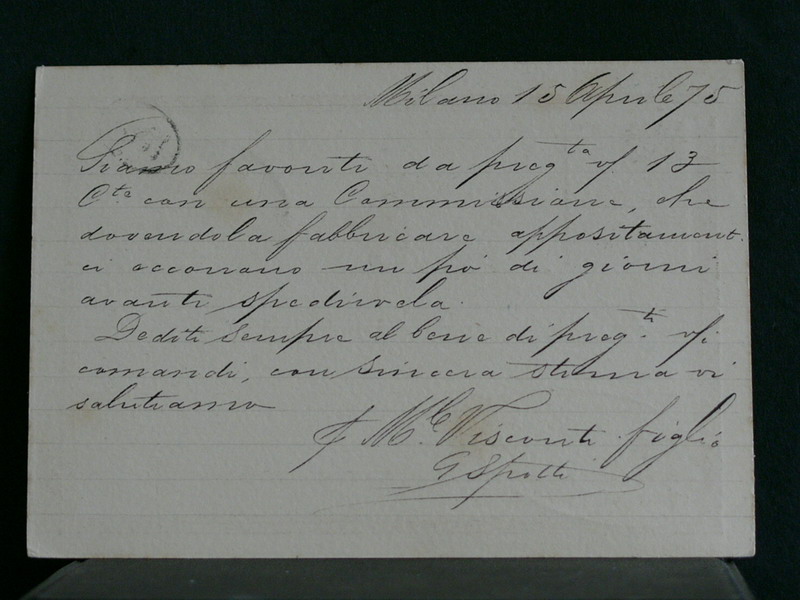 Milano 15 Aprile 75
Siamo favoriti da preg.ta v/ 13
C.te con una Commissione, che
dovendola fabbricare appositament.
ci occorrano un pó di giorni
avanti spedirvela.
Dediti sempre al bene di preg.ti v/i
comandi, con sincera stima vi
salutiamo
Visconti figlio
G Spotti